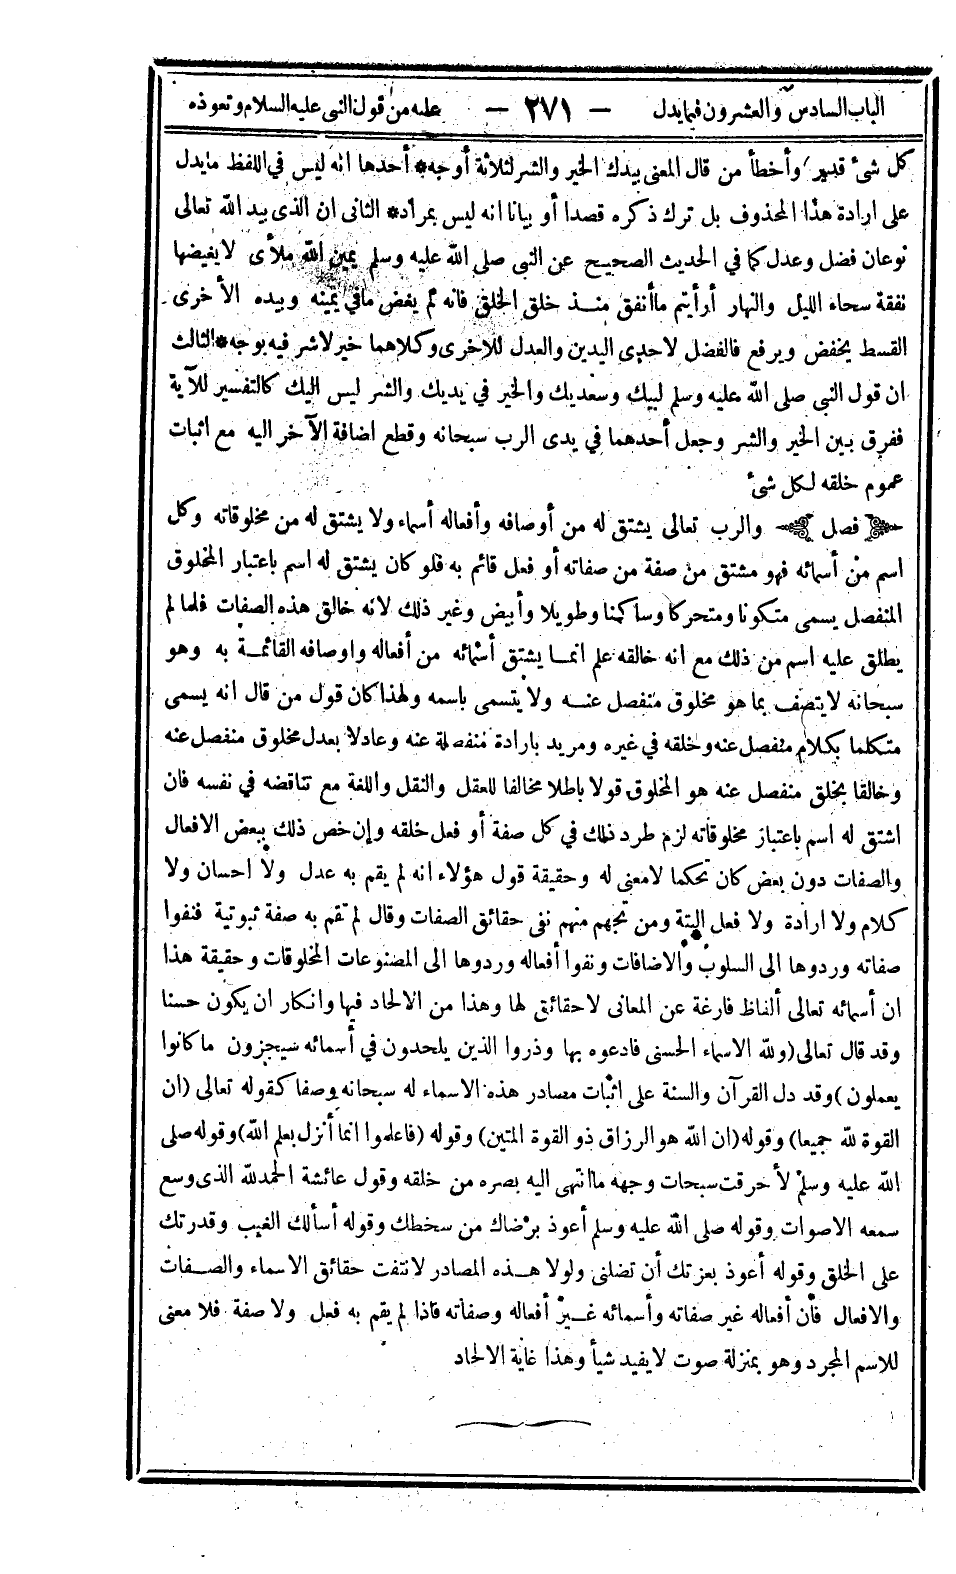 الباب السادس والعشرون فيما يدل — ٢٧١ — عليه من قول النبي عليه السلام وتعوذه
كل شئ قدير وأخطأ من قال المعنى بيدك الخير والشر لثلاثة أوجه* أحدها انه ليس في اللفظ ما يدل
على ارادة هذا المحذوف بل ترك ذكره قصدا أو بيانا انه ليس بمراد* الثانى ان الذى بيد الله تعالى
نوعان فضل وعدل كما في الحديث الصحيح عن النبى صلى الله عليه وسلم يمين الله ملأى لا يغيضها
نفقة سحاء الليل والنهار أرأيتم ماأنفق منذ خلق الخلق فانه لم يغض مافي يمينه وبيده الأخرى
القسط يخفض ويرفع فالفضل لاحدى اليدين والعدل للاخرى وكلاهما خير لاشر فيه بوجه* الثالث
ان قول النبى صلى الله عليه وسلم لبيك وسعديك والخير في يديك والشر ليس اليك كالتفسير للآية
ففرق بين الخير والشر وجعل أحدهما في يدى الرب سبحانه وقطع اضافة الآخر اليه مع اثبات
عموم خلقه لكل شئ
فصل والرب تعالى يشتق له من أوصافه وأفعاله أسماء ولا يشتق له من مخلوقاته وكل
اسم من أسمائه فهو مشتق من صفة من صفاته أو فعل قائم به فلو كان يشتق له اسم باعتبار المخلوق
المنفصل يسمى متكونا ومتحركا وساكنا وطويلا وأبيض وغير ذلك لانه خالق هذه الصفات فلما لم
يطلق عليه اسم من ذلك مع انه خالقه علم انما يشتق أسمائه من أفعاله واوصافه القائمة به وهو
سبحانه لا يتصف بما هو مخلوق منفصل عنه ولا يتسمى باسمه ولهذا كان قول من قال انه يسمى
متكلما بكلام منفصل عنه وخلقه في غيره ومريد بارادة منفصلة عنه وعادلا بعدل مخلوق منفصل عنه
وخالقا بخلق منفصل عنه هو المخلوق قولا باطلا مخالفا للعقل والنقل واللغة مع تناقضه في نفسه فان
اشتق له اسم باعتبار مخلوقاته لزم طرد ذلك في كل صفة أو فعل خلقه وإن خص ذلك ببعض الافعال
والصفات دون بعض كان تحكما لامعنى له وحقيقة قول هؤلاء انه لم يقم به عدل ولا احسان ولا
كلام ولا ارادة ولا فعل البتة ومن تجهم منهم نفى حقائق الصفات وقال لم تقم به صفة ثبوتية فنفوا
صفاته وردوها الى السلوب والاضافات ونفوا أفعاله وردوها الى المصنوعات المخلوقات وحقيقة هذا
ان أسمائه تعالى ألفاظ فارغة عن المعانى لاحقائق لها وهذا من الالحاد فيها وانكار ان يكون حسنا
وقد قال تعالى (ولله الاسماء الحسنى فادعوه بها وذروا الذين يلحدون في أسمائه سيجزون ما كانوا
يعملون) وقد دل القرآن والسنة على اثبات مصادر هذه الاسماء له سبحانه وصفا كقوله تعالى (ان
القوة لله جميعا) وقوله (ان الله هو الرزاق ذو القوة المتين) وقوله (فاعلموا انما أنزل بعلم الله) وقوله صلى
الله عليه وسلم لأحرقت سبحات وجهه ماانتهى اليه بصره من خلقه وقول عائشة الحمدلله الذى وسع
سمعه الاصوات وقوله صلى الله عليه وسلم أعوذ برضاك من سخطك وقوله أسألك الغيب وقدرتك
على الخلق وقوله أعوذ بعزتك أن تضلنى ولولا هذه المصادر لانتفت حقائق الاسماء والصفات
والافعال فان أفعاله غير صفاته وأسمائه غير أفعاله وصفاته فاذا لم يقم به فعل ولا صفة فلا معنى
للاسم المجرد وهو بمنزلة صوت لا يفيد شيأ وهذا غاية الالحاد